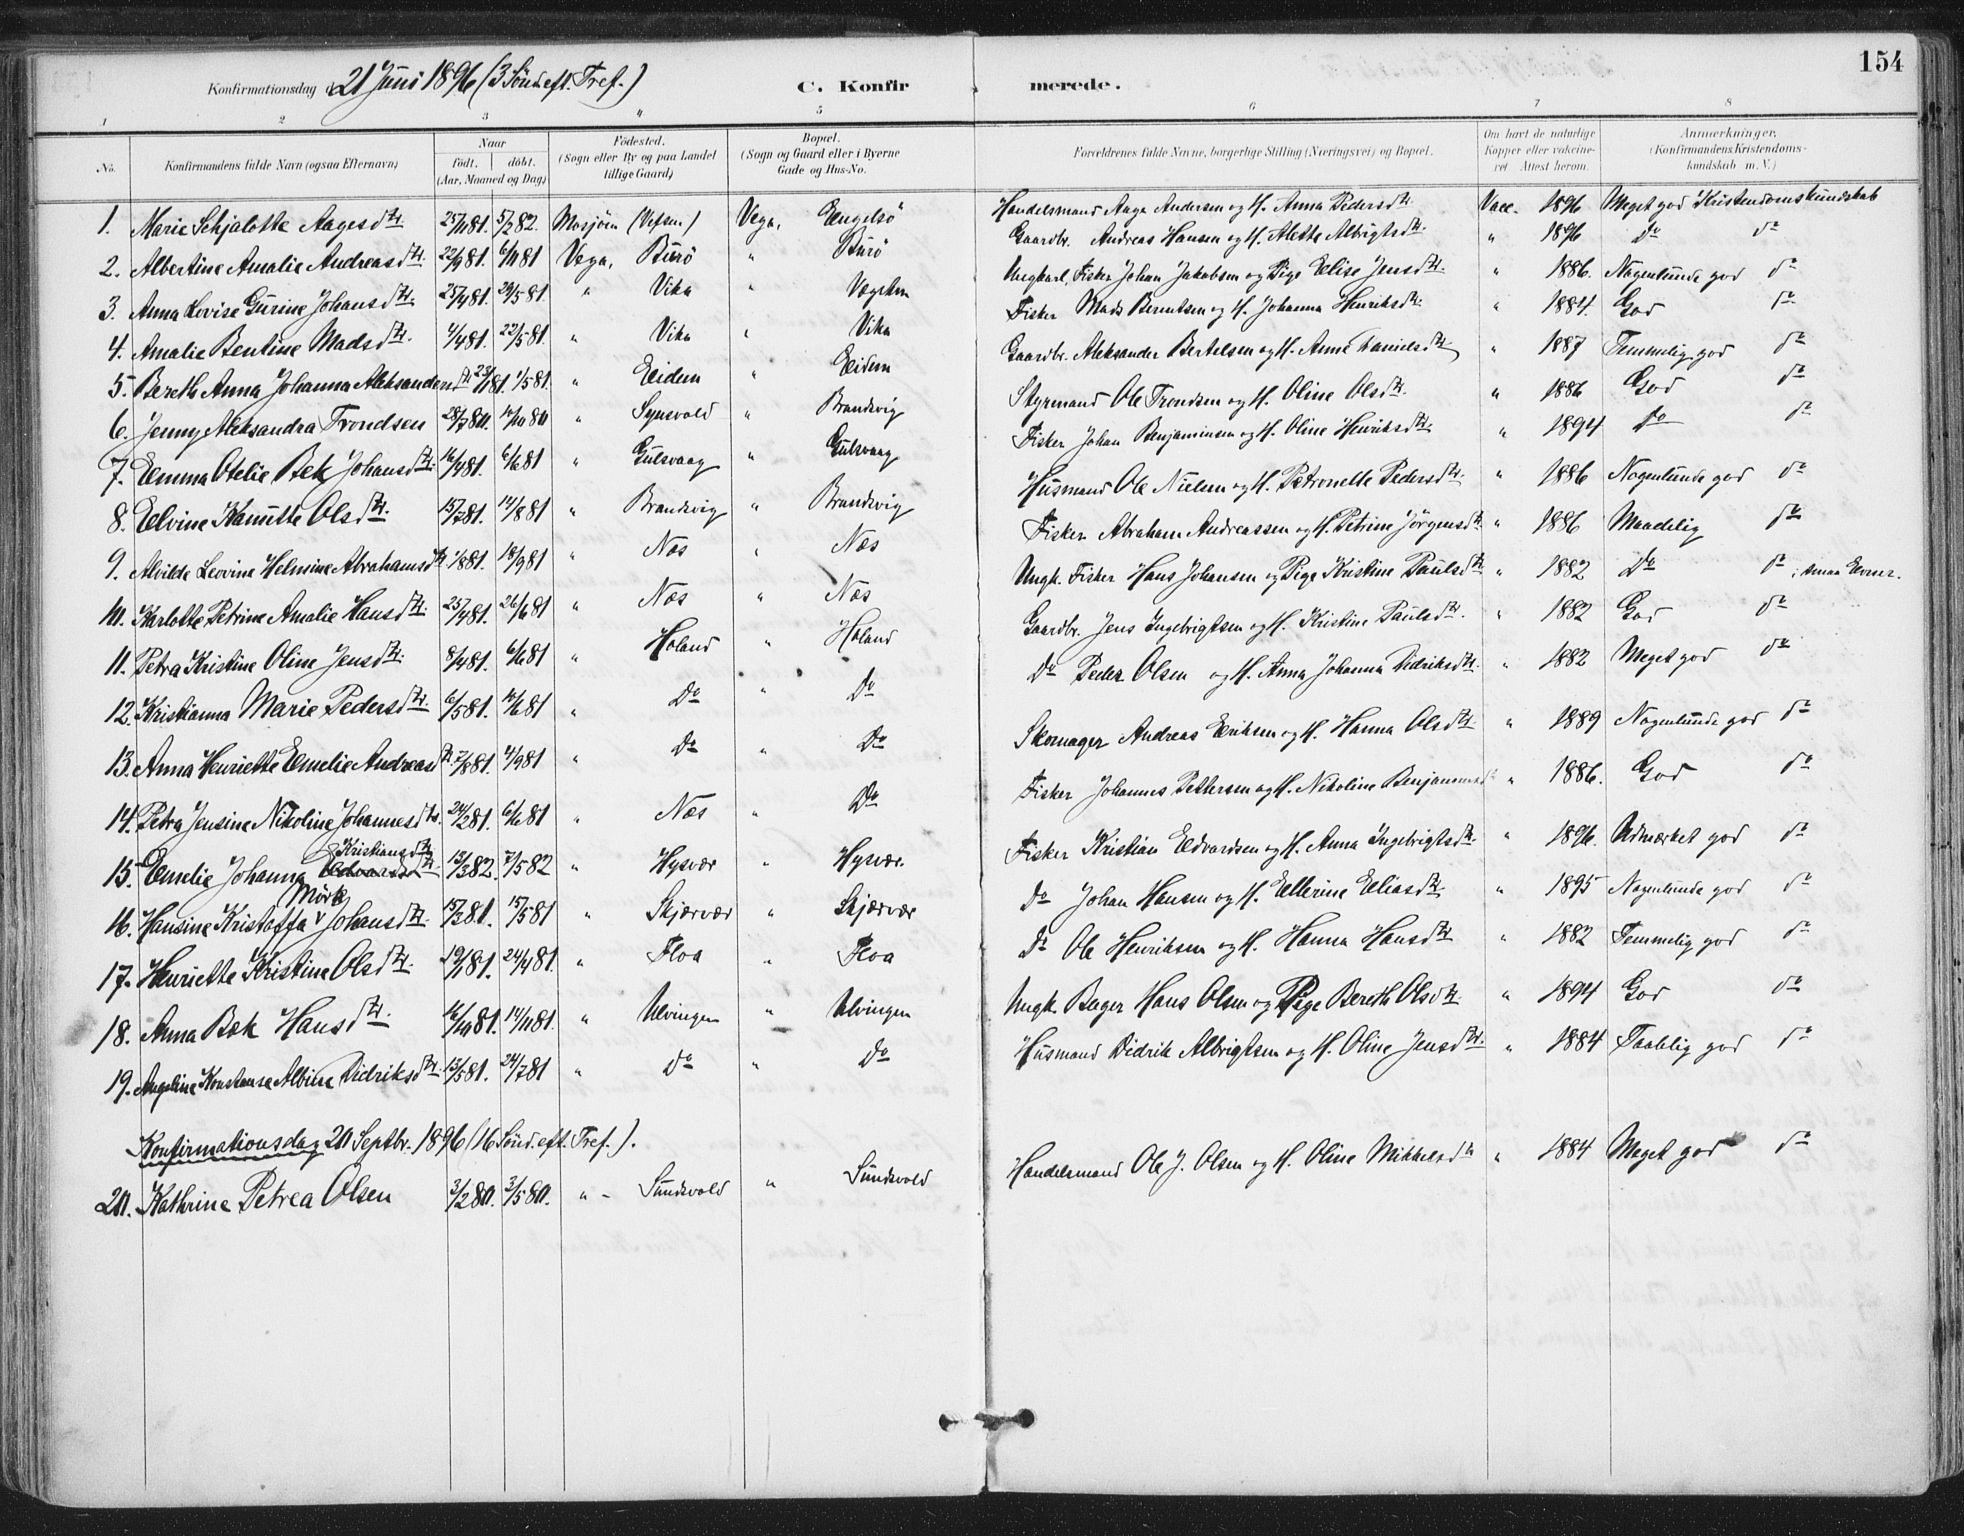 154
Konfirmationsdag d. 21 Juni 1896 (3 Sönd. eft. Tref.)
C. Konfirmerede.
1 2 3 " 5 6 7 8
No. Konfirmandens fulde Navn (ogsaa Efternavn) Naar födt. döbt. (Aar, Maaned og Dag) Födested. (Sogn eller By og paa Landet tillige Gaard) Bopæl. (Sogn og Gaard eller i Byerne Gade og Hus-No. Forældrenes fulde Navne, borgerlige Stilling (Næringsvei) og Bopæl. Om havt de naturlige Kopper eller vaccineret Attest herom. Anmerkninger. (Konfirmandens Kristendomskundskab m. V.)
1. Marie Schjalotte Aagesdtr. 25/11 81. 5/2 82. Mosjöen (Vefsen) Vega, Engelsö Handelsmand Aage Andersen og H. Anna Pedersdtr. Vacc. 1896 Meget god Kristendomskundskab
2. Albertine Amalie Andreasdtr. 22/9 81. 6/11 81 Vega, Burö " Burö Gaardbr. Andreas Hansen og H. Alette Albrigtsdtr. " 1896 do do
3. Anna Lovise Gurine Johansdtr. 25/4 81. 29/5 81. " Vika " Ungkarl, Fisker Johan Jakobsen og Pige Elise Jensdtr. " 1886. Nogenlunde god do
4. Amalie Bentine Madsdtr. 4/4 81. 22/5 81. " Vika " Vika Fisker Mads Berentsen og H. Johanna Henriksdtr. " 1884. God do
5. Bereth Anna Johanna Aleksandersdtr. 23/1 81. 1/5 81. " Eidem " Eidem Gaardbr. Aleksander Bertelsen og H. Anne Danielsdtr. " 1887 Temmelig god do
6. Jenny Aleksandra Trondsen 28/7 80. " " Brandsvig Styrmand Ole Trondsen og H. Oline Olsdtr. " 1886 God do
7. Emma Otelie Bek Johansdtr. 16/4 81. 6/6 81 " Gulsvaag " Gulsvaag Fisker Johan Benjaminsen og H. Oline Henriksdtr. " 1894 do do
8. Elvine Hanette Olsdtr. 15/7 81. 14/8 81 " Brandsvig " Brandsvig Husmand Ole Nielsen og H. Petronelle Pedersdtr. " 1886 Nogenlunde god do
9. Alvilde Leovine Helmine Abrahamsdtr. 1/8 81. 18/9 81 " Næs " Næs Fisker Abraham Andreassen og H. Petrine Jörgensdtr. " 1886 Maadelig do
10. Karlotte Petrine Amalie Hansdtr. 25/4 81. 26/6 81 " Næs " Næs Ungk. Fisker Hans Johansen og Pige Kristine Paulsdtr. " 1882 do do; smaa Evner.
11. Petra Kristine Oline Jensdtr. 8/4 81. 6/6 81 " Holand " Holand Gaardbr. Jens Ingebrigtsen og H. Kristine Paulsdtr. " 1882 God do
12. Kristianna Marie Pedersdtr. 6/5 81. 10/6 81 " Do " Do Do Peder Olsen og H. Anna Johanna Didriksdtr. " 1882 Meget god do
13. Anna Henriette Emelie Andreasdtr. 7/8 81. 4/9 81 " Do " Do Skomager Andreas Eriksen og H. Hanna Olsdtr. " 1889 Nogenlunde god do
14. Petra Jensine Nikoline Johannesdtr. 24/2 81. 6/6 81 " Næs " Do Fisker Johannes Pettersen og H. Nikoline Benjaminsd " 1886. God do
15. Emelie Johanna Edvardsdtr. Kristiansdtr. 13/3 82. 7/5 82 " Hysvær " Hysvær Fisker Kristian Edvardsen og H. Anna Ingebrigtsdtr. " 1896. Udmærket god do
16. Hansine Kristoffa Mörk Johansdtr. 15/3 81. 15/5 81 " Skjærvær " Skjærvær Do Johan Hansen og H. Ellerine Eliasdtr. " 1895 Nogenlunde god do
17. Henriette Kristine Olsdtr. 19/1 81. 24/4 81. " Floa " Floa Do Ole Henriksen og H. Hanna Hansdtr. " 1882 Temmelig god do
18. Anna Bek Hansdtr. 16/10 81. 14/11 81 " Ulvingen " Ulvingen Ungk. Bager Hans Olsen og Pige Bereth Olsdtr. " 1894 God do
19. Angeline Konstanse Albine Didriksdtr. 13/5 81. 24/7 81 " Do " Do Husmand Didrik Albrigtsen og H. Oline Jensdtr. " 1884 Taalelig god do
Konfirmationsdag 20 Septbr. 1896 (16 Sönd. eft. Tref.).
20. Kathrine Petrea Olsen 3/2 80. 3/5 80. " - Sundsvold " Sundsvold Handelsmand Ole J. Olsen og H. Oline Mikkelsdtr " 1884 Meget god do